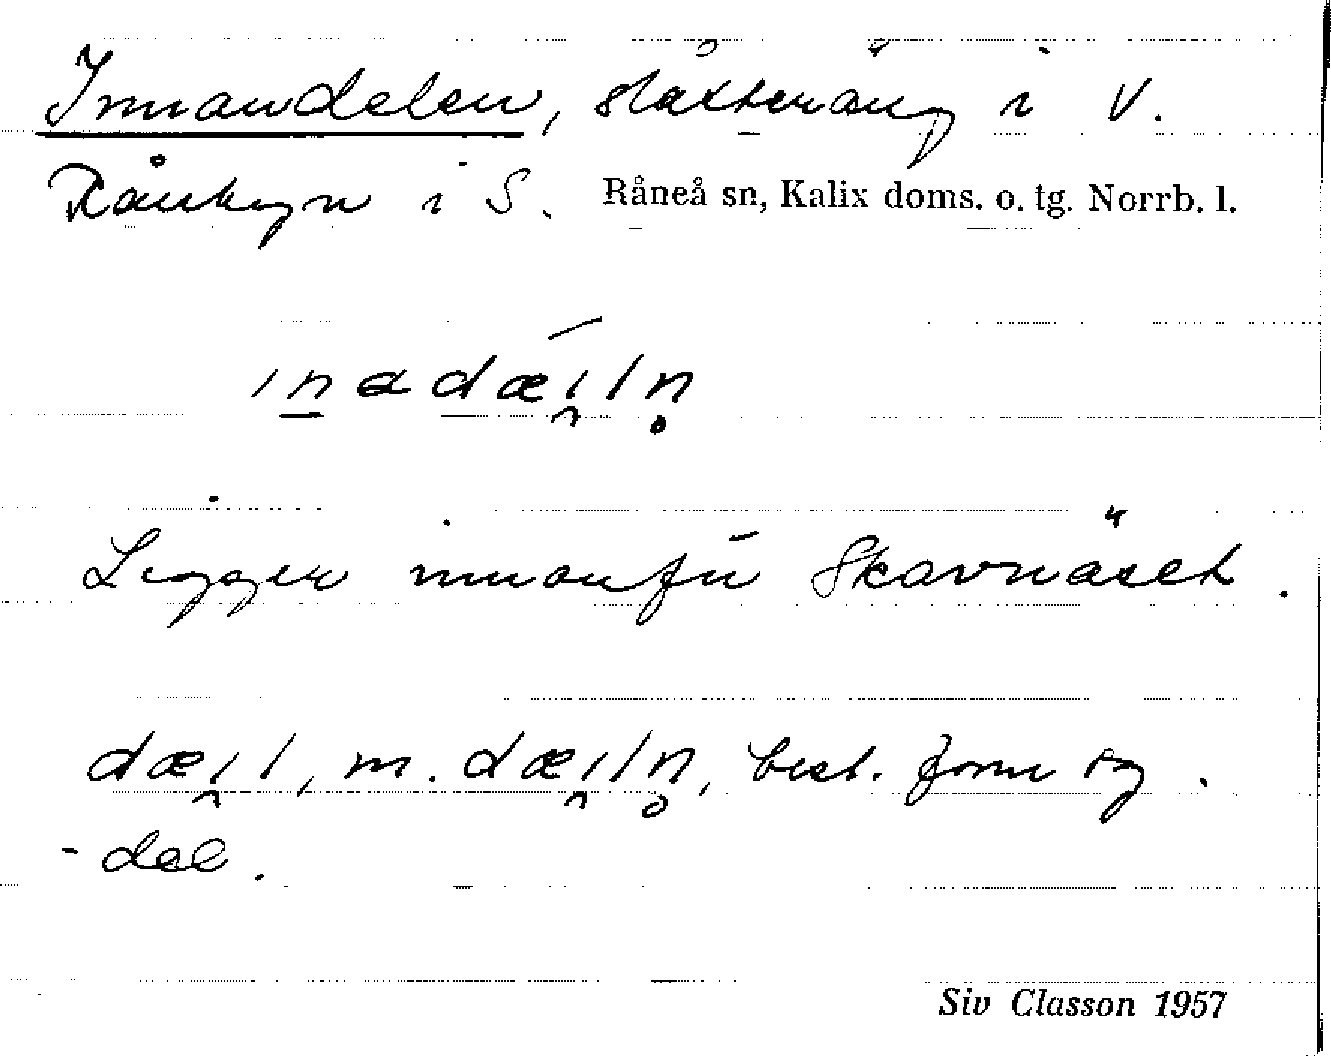 Innandelen, slåtteräng i V.
Rånbyn i S. Råneå sn, Kalix doms. o. tg. Norrb. l.
ın̲adæı̯ln̥
Ligger innanför Skavnäset.
dæı̯l, m. dæı̯ln̥, best. form sg.
- del.
Siv Classon 1957